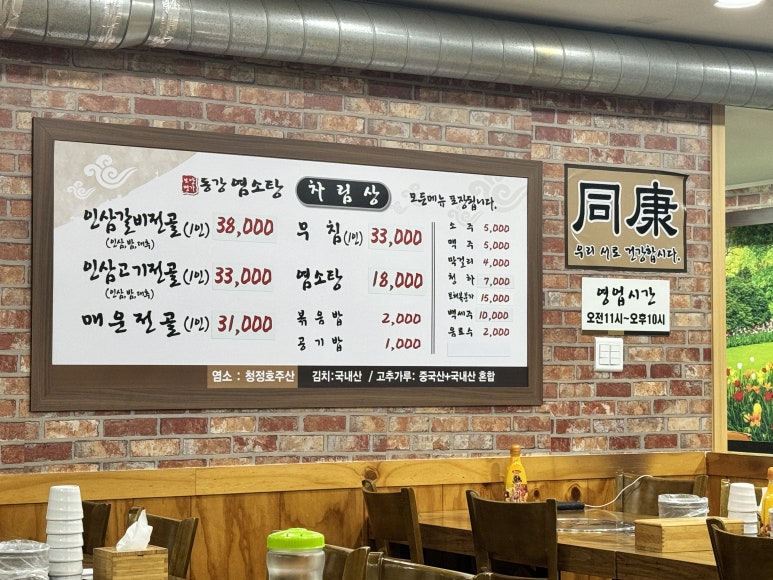 동강 염소탕 차림상 모든메뉴 포장됩니다.
인삼갈비전골(1인) 38,000
(인삼,밤,대추)
인삼고기전골(1인) 33,000
(인삼,밤,대추)
매운전골(1인) 31,000
무침(1인) 33,000
염소탕 18,000
볶음밥 2,000
공기밥 1,000
소주 5,000
맥주 5,000
막걸리 4,000
청하 7,000
보해복분자 15,000
백세주 10,000
음료수 2,000
염소 : 청정호주산 김치:국내산 / 고추가루: 중국산+국내산 혼합
同康
우리 서로 건강합시다.
영업시간
오전11시~오후10시